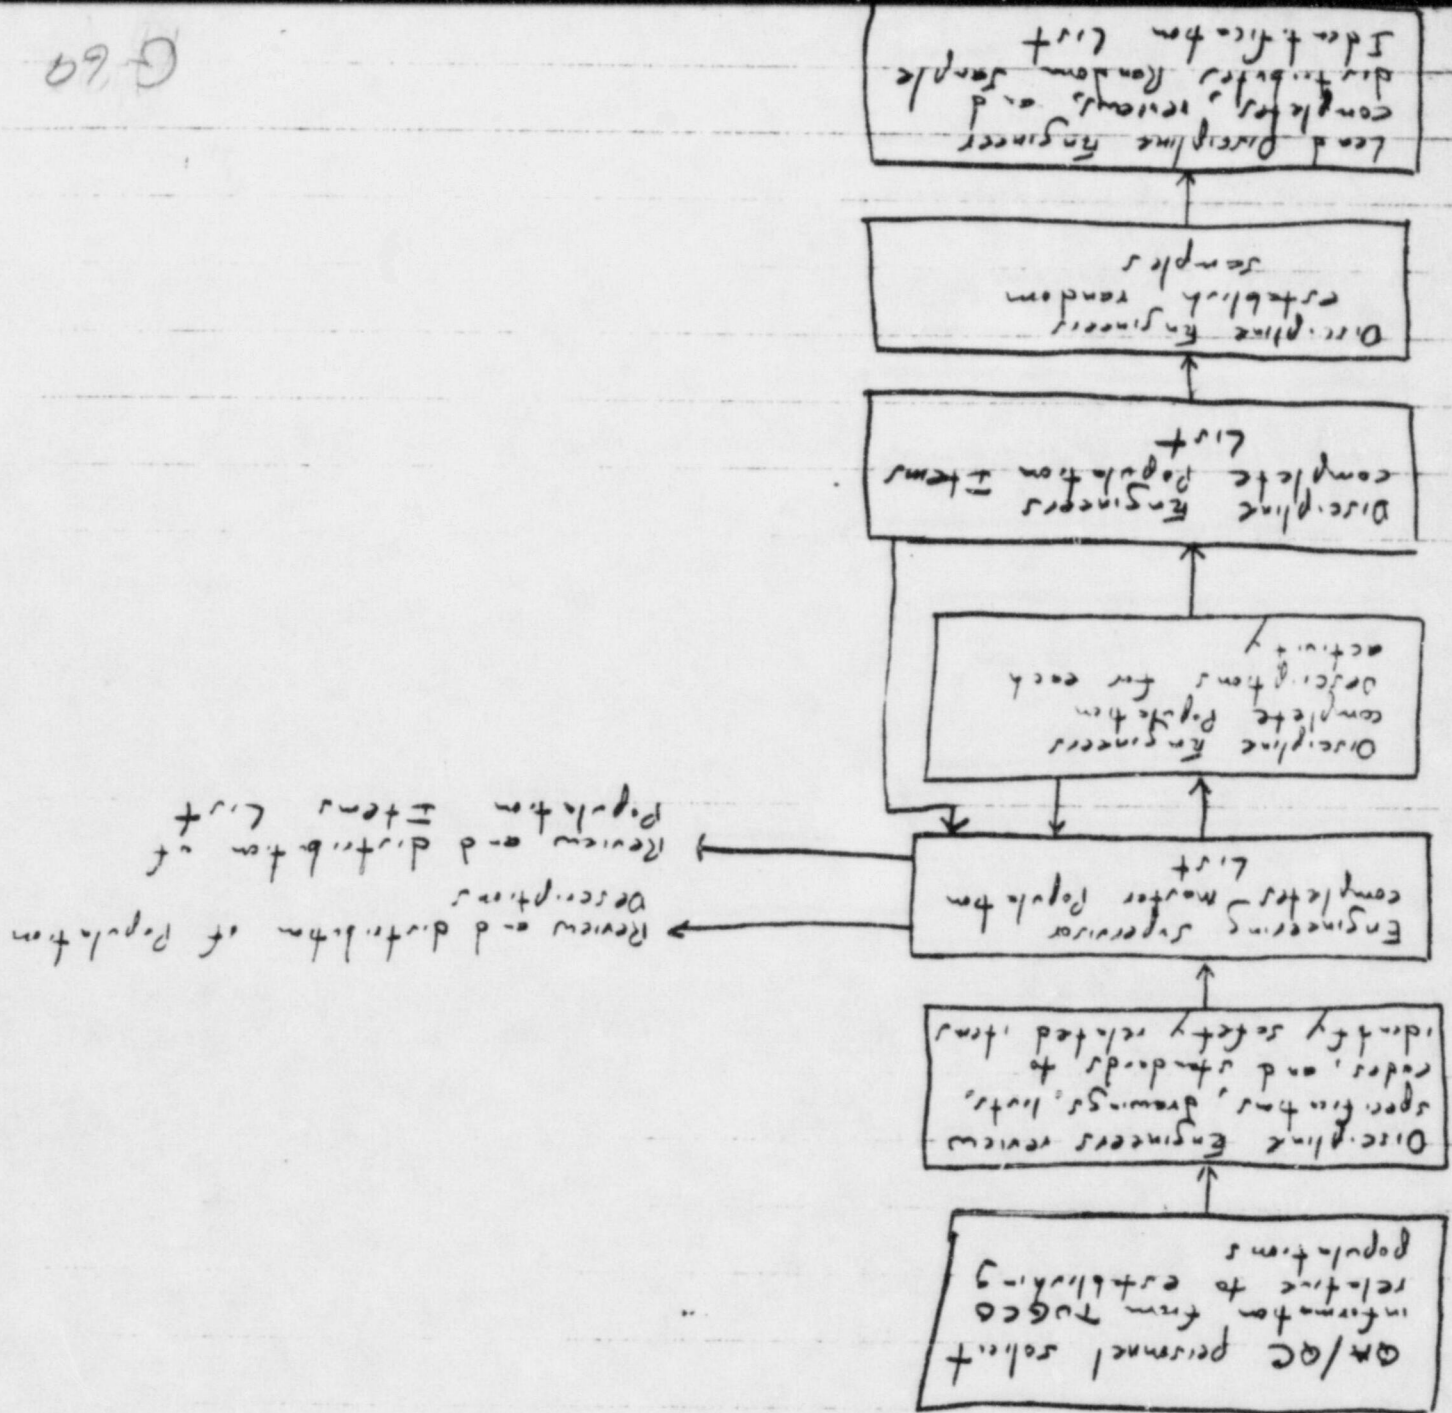 QA/QC personnel solicit
information from TUGCO
relative to establishing
populations
Discipline Engineers review
specifications, drawings, lists,
codes, and standards to
identify safety related items
Engineering Supervisor
completes Master Population
List
Review and distribution of Population
Descriptions
Review and distribution of
Population Items List
Discipline Engineers
complete Population
Descriptions for each
activity
Discipline Engineers
complete Population Items
List
Discipline Engineers
establish random
samples
Lead Discipline Engineer
completes, reviews, and
distributes Random Sample
Identification List